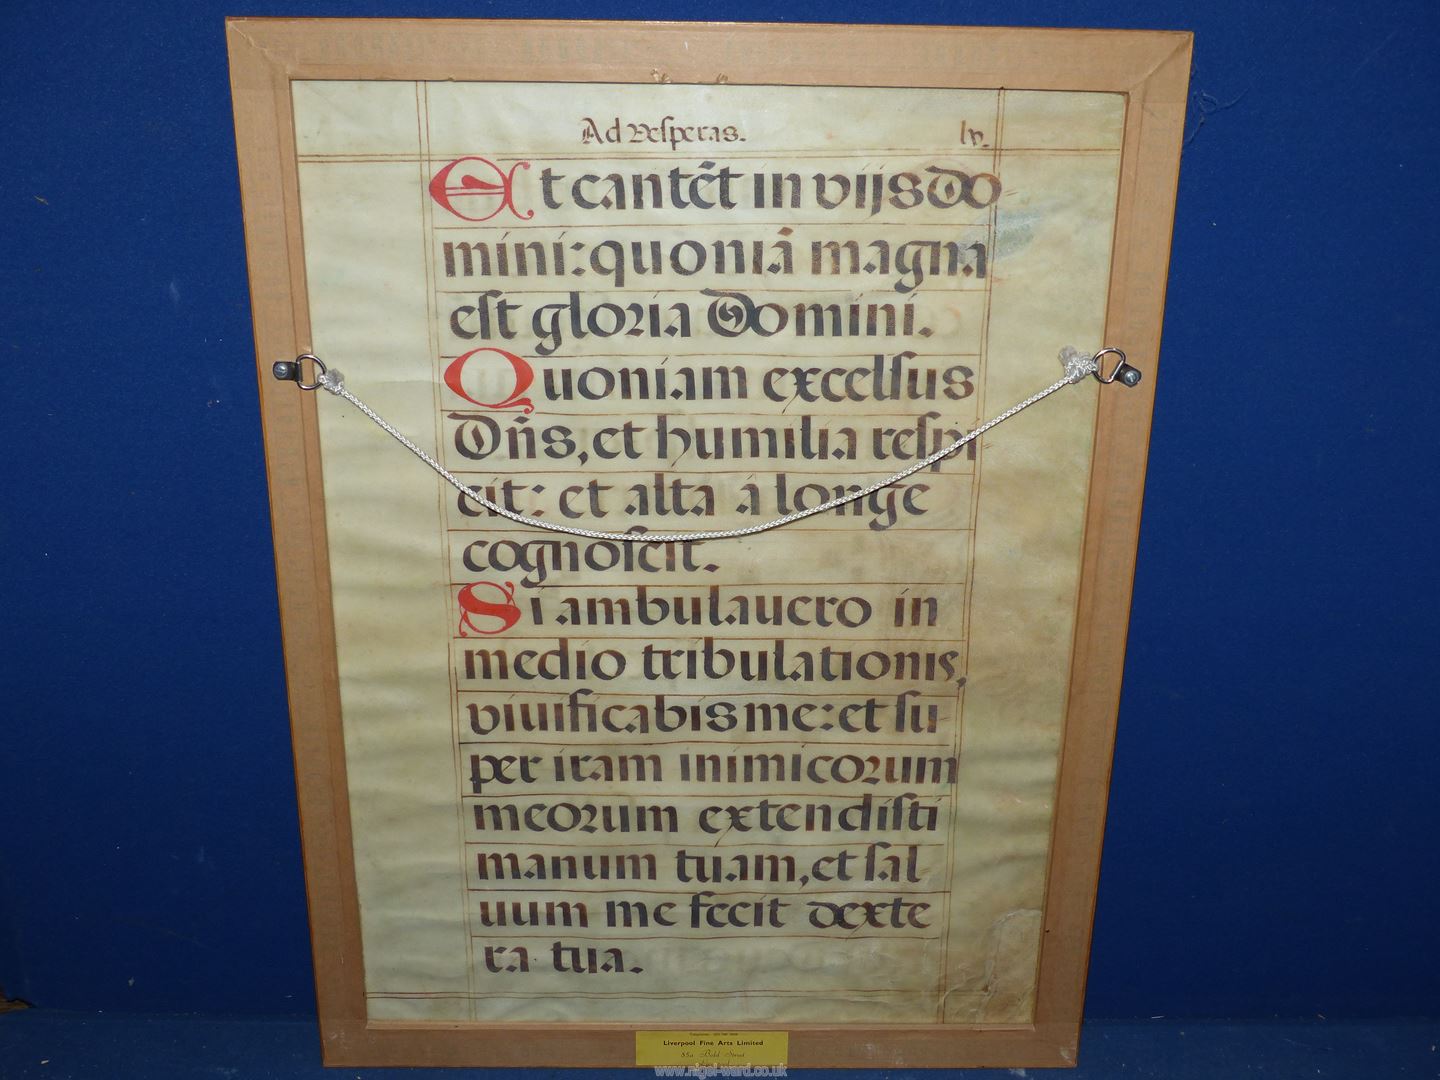 Ad Vesperas. lv.
Et cantēt in viis Do
mini: quoniā magna
est gloria Domini.
Quoniam excelsus
Dñs, et humilia respi
cit: et alta á longe
cognoscit.
Si ambulauero in
medio tribulationis,
viuificabis me: et su
per iram inimicorum
meorum extendisti
manum tuam, et sal
uum me fecit dexte
ra tua.
Liverpool Fine Arts Limited
55a Bold Street
www.nigel-ward.co.uk